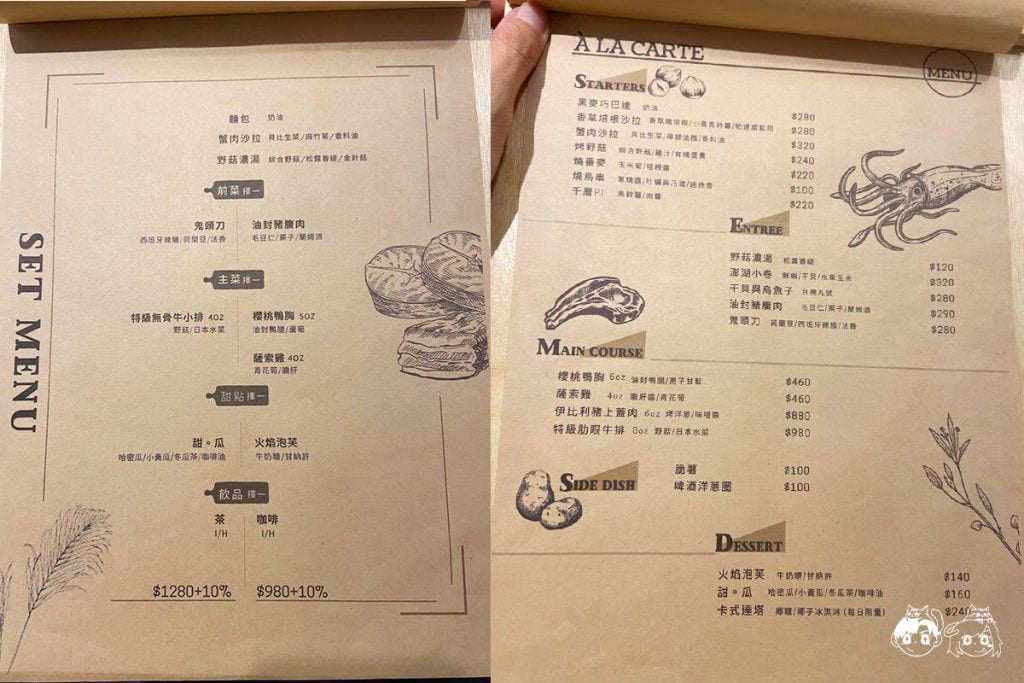 SET MENU
麵包 奶油
蟹肉沙拉 貝比生菜/麻竹筍/香料油
野菇濃湯 綜合野菇/松露香緹/金針菇
前菜 擇一
鬼頭刀 油封豬腹肉
西班牙辣腸/荷蘭豆/法香 毛豆仁/栗子/蘭姆酒
主菜 擇一
特級無骨牛小排 4OZ 櫻桃鴨胸 5OZ
野菇/日本水菜 油封鴨腿/蘆筍
薩索雞 4OZ
青花筍/膽肝
甜點 擇一
甜。瓜 火焰泡芙
哈密瓜/小黃瓜/冬瓜茶/咖啡油 牛奶糖/甘納許
飲品 擇一
茶 咖啡
I/H I/H
$1280+10% $980+10%
À LA CARTE
MENU
STARTERS
黑麥巧巴達 奶油 $280
香草培根沙拉 香草豬培根/小黃馬鈴薯/帕達諾起司 $280
蟹肉沙拉 貝比生菜/檸檬油醋/香料油 $320
烤野菇 綜合野菇/雞汁/有機蛋黃 $240
燒番麥 玉米筍/培根棉 $220
燒鳥串 蔥燒醬/牡蠣美乃滋/迷迭香 $100
千層PI 馬鈴薯/肉醬 $220
ENTREE
野菇濃湯 松露香緹 $120
澎湖小卷 鮮蝦/干貝/水果玉米 $320
干貝與烏魚子 台稉九號 $280
油封豬腹肉 毛豆仁/栗子/蘭姆酒 $290
鬼頭刀 荷蘭豆/西班牙辣腸/法香 $280
MAIN COURSE
櫻桃鴨胸 5oz 油封鴨腿/孢子甘藍 $460
薩索雞 4oz 膽肝醬/青花筍 $460
伊比利豬上蓋肉 6oz 烤洋蔥/味噌醬 $880
特級肋眼牛排 8oz 野菇/日本水菜 $980
SIDE DISH
脆薯 $100
啤酒洋蔥圈 $100
DESSERT
火焰泡芙 牛奶糖/甘納許 $140
甜。瓜 哈密瓜/小黃瓜/冬瓜茶/咖啡油 $160
卡式達塔 椰糖/椰子冰淇淋(每日限量) $240